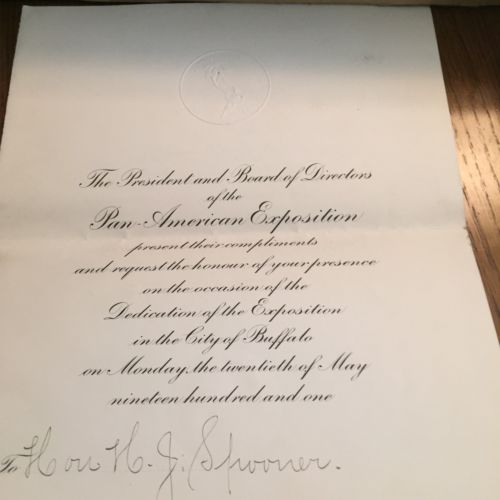 The President and Board of Directors
of the
Pan-American Exposition
present their compliments
and request the honour of your presence
on the occasion of the
Dedication of the Exposition
in the City of Buffalo
on Monday, the twentieth of May
nineteen hundred and one
To Hon H. J. Spooner.